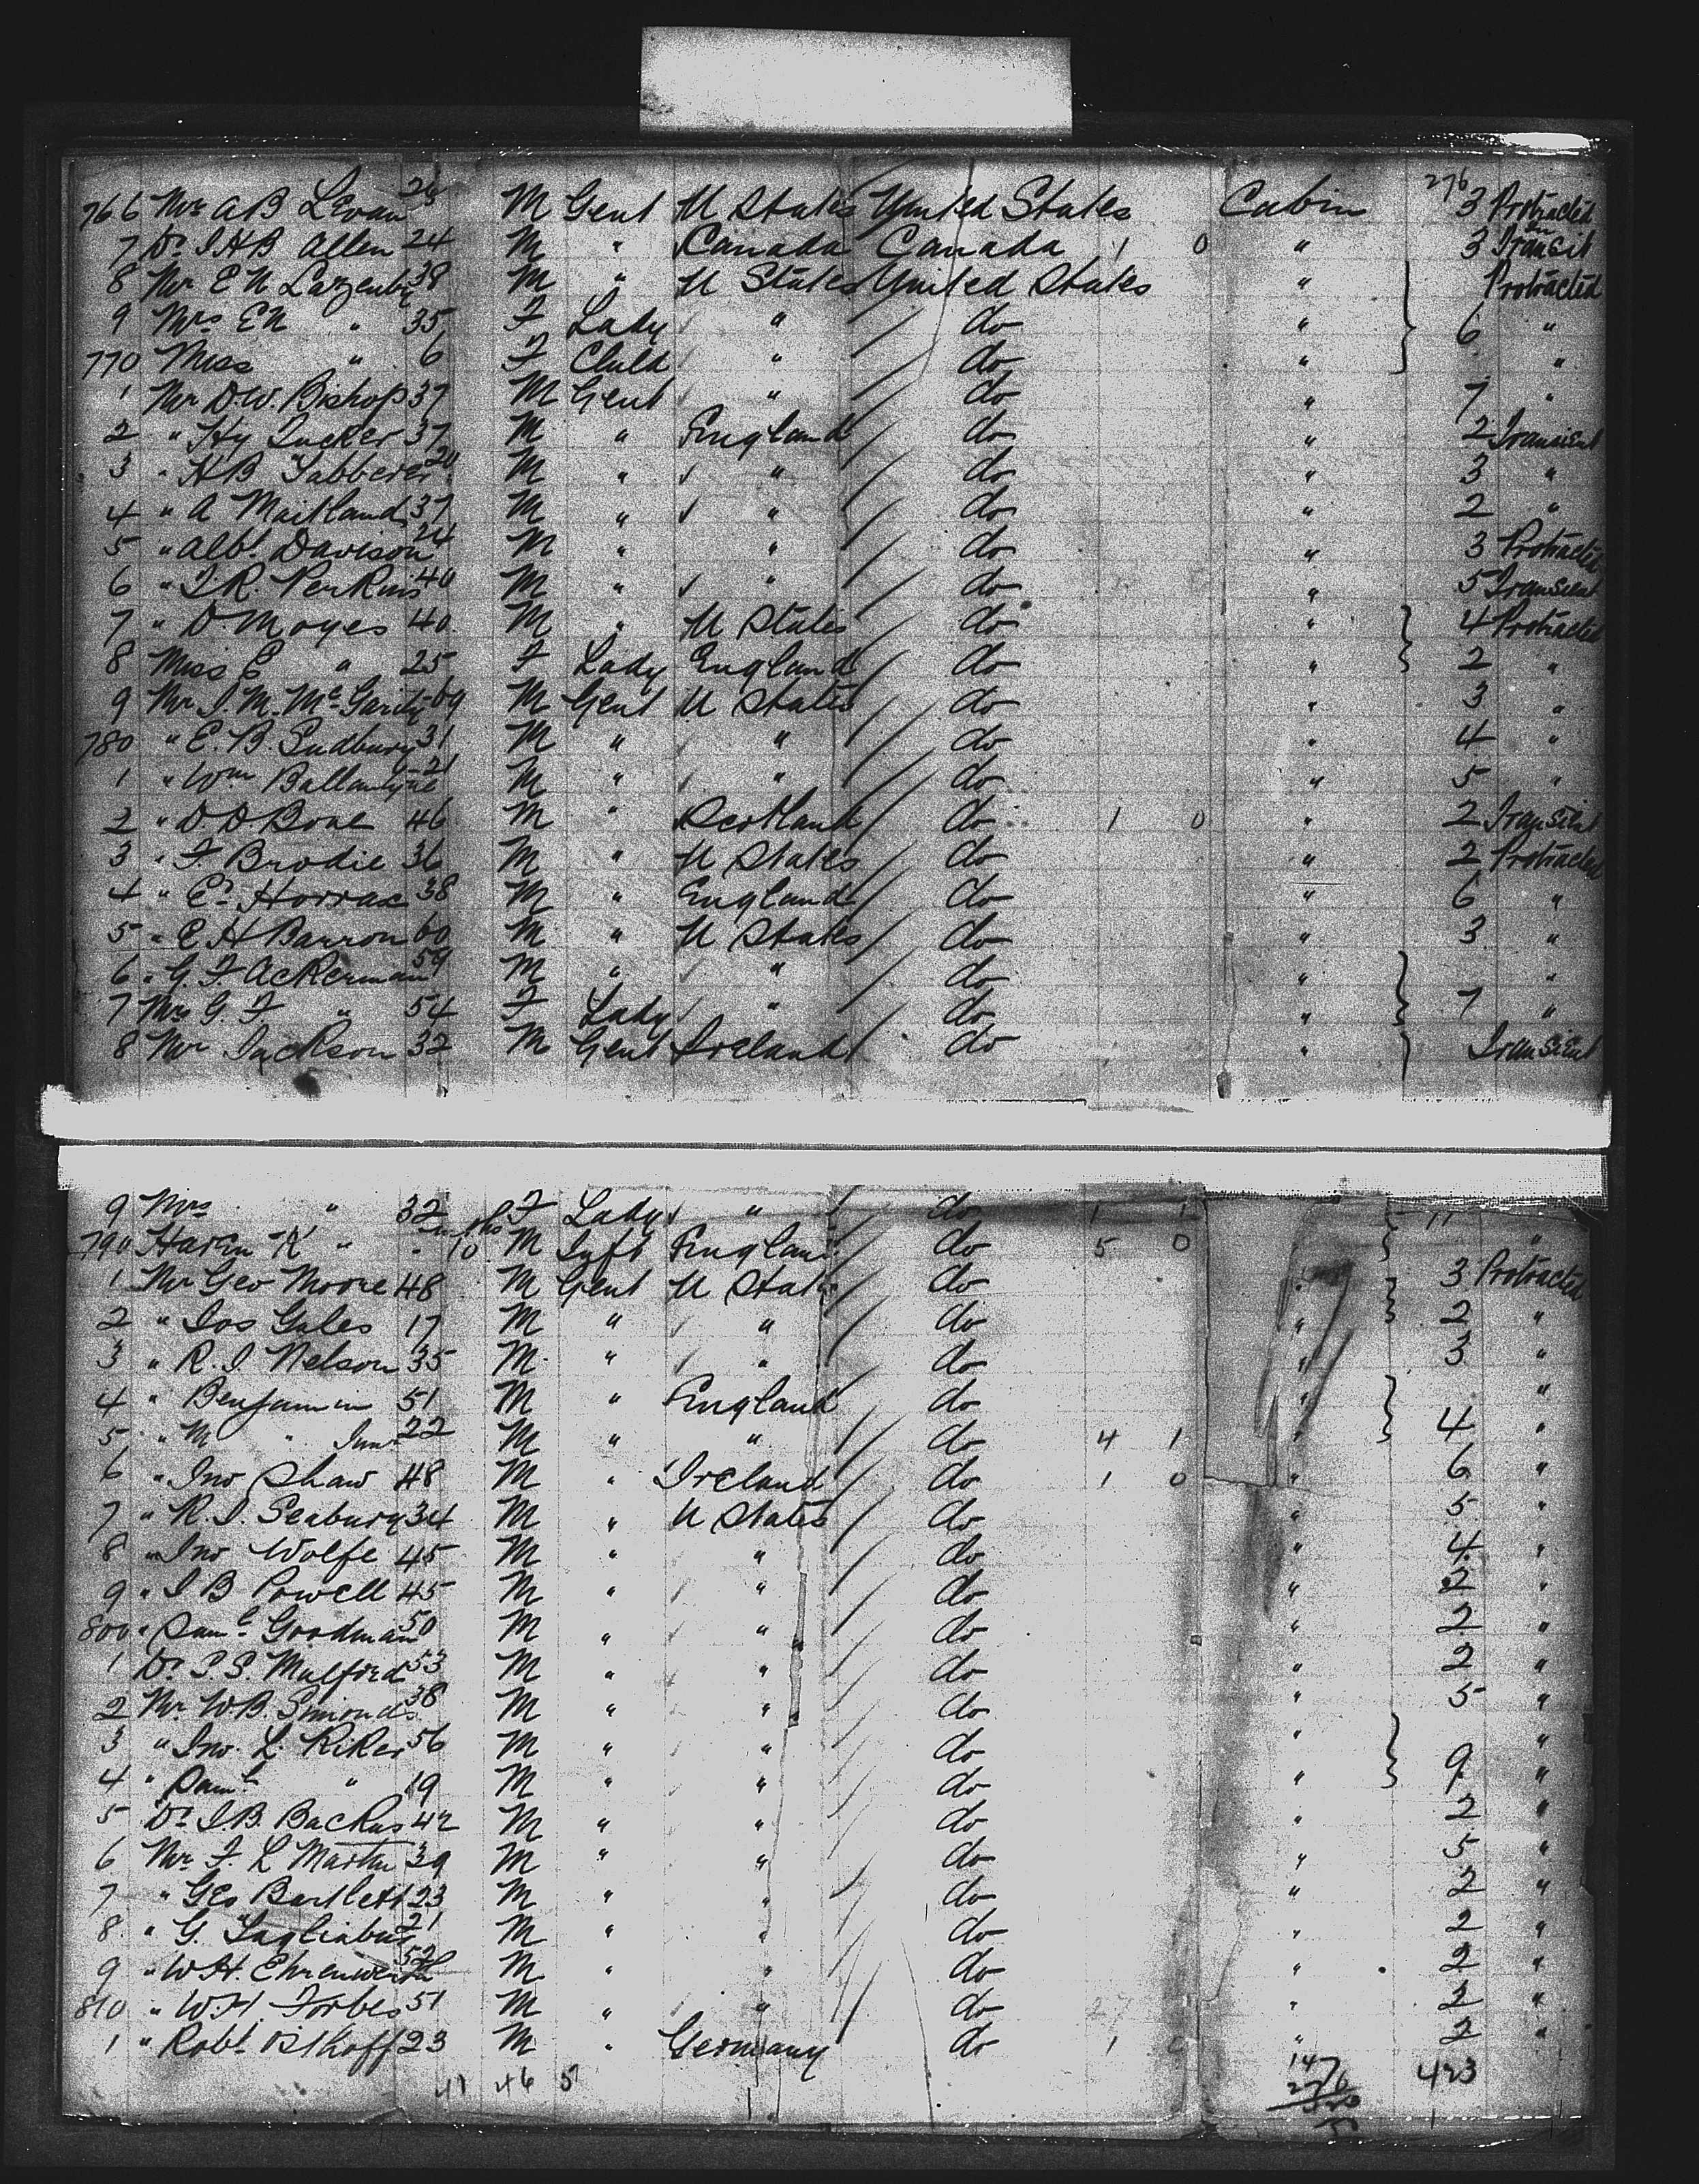 276
766 Mr A B LEvan 26 M Gent U States United States Cabin 3 Protracted
7 Dr I H B Allen 24 M " Canada Canada 1 0 " 3 In Transit
8 Mr E N Lazenby 38 M " U States United States " Protracted
9 Mrs E N " 35 F Lady " do " 6 "
770 Miss " 6 F Child " do " "
1 Mr D W. Bishop 37 M Gent " do " 7 "
2 " Hy Tucker 37 M " England do " 2 Transient
3 " H B Tabberer 20 M " " do " 3 "
4 " A Maitland 37 M " " do " 2 "
5 " Albt Davison 24 M " " do " 3 Protracted
6 " I. R. Perkins 40 M " " do " 5 Transient
7 " D Moyes 40 M " U States do " 4 Protracted
8 Miss E " 25 F Lady England do " 2 "
9 Mr I. M. McGarity 69 M Gent U States do " 3 "
780 " E. B. Sudbury 31 M " " do " 4 "
1 " Wm Ballantyne 21 M " " do " 5 "
2 " D. D. Bone 46 M " Scotland do 1 0 " 2 Transient
3 " F Brodie 36 M " U States do " 2 Protracted
4 " Ed Horrax 38 M " England do " 6 "
5 " E H Barron 60 M " U States do " 3 "
6 " G. F. Ackerman 59 M " " do " "
7 Mrs G. F " 54 F Lady " do " 7 "
8 Mr Jackson 32 M Gent Ireland do " Transient
9 Mrs " 32 F Lady " do 1 1 11
790 " 10 mths M Inft England do 5 0 "
1 Mr Geo Moore 48 M Gent U States do " 3 Protracted
2 " Jos Gales 17 M " " do " 2 "
3 " R. I. Nelson 35 M " " do " 3 "
4 " Benjamin 51 M " England do " "
5 " M " Junr 22 M " " do 4 1 " 4 "
6 " Jno Shaw 48 M " Ireland do 1 0 " 6 "
7 " R. I. Seabury 34 M " U States do " 5 "
8 " Jno Wolfe 45 M " " do " 4 "
9 " I B Powell 45 M " " do " 2 "
800 " Saml Goodman 50 M " " do " 2 "
1 Dr S. S. Mulford 53 M " " do " 2 "
2 Mr W B. Simonds 38 M " " do " 5 "
3 " Jno. L. Riker 56 M " " do " "
4 " Saml " 19 M " " do " 9 "
5 Dr I. B. Backus 42 M " " do " 2 "
6 Mr F. L Martin 39 M " " do " 5 "
7 " Geo Bartlett 23 M " " do " 2 "
8 " G. Tagliabue 21 M " " do " 2 "
9 " W H. Ehrenwerth 52 M " " do " 2 "
810 " W. H Forbes 51 M " " do " 2 "
1 " Robt 23 M " Germany do 1 0 " 2 "
41 46 5 147 423
276